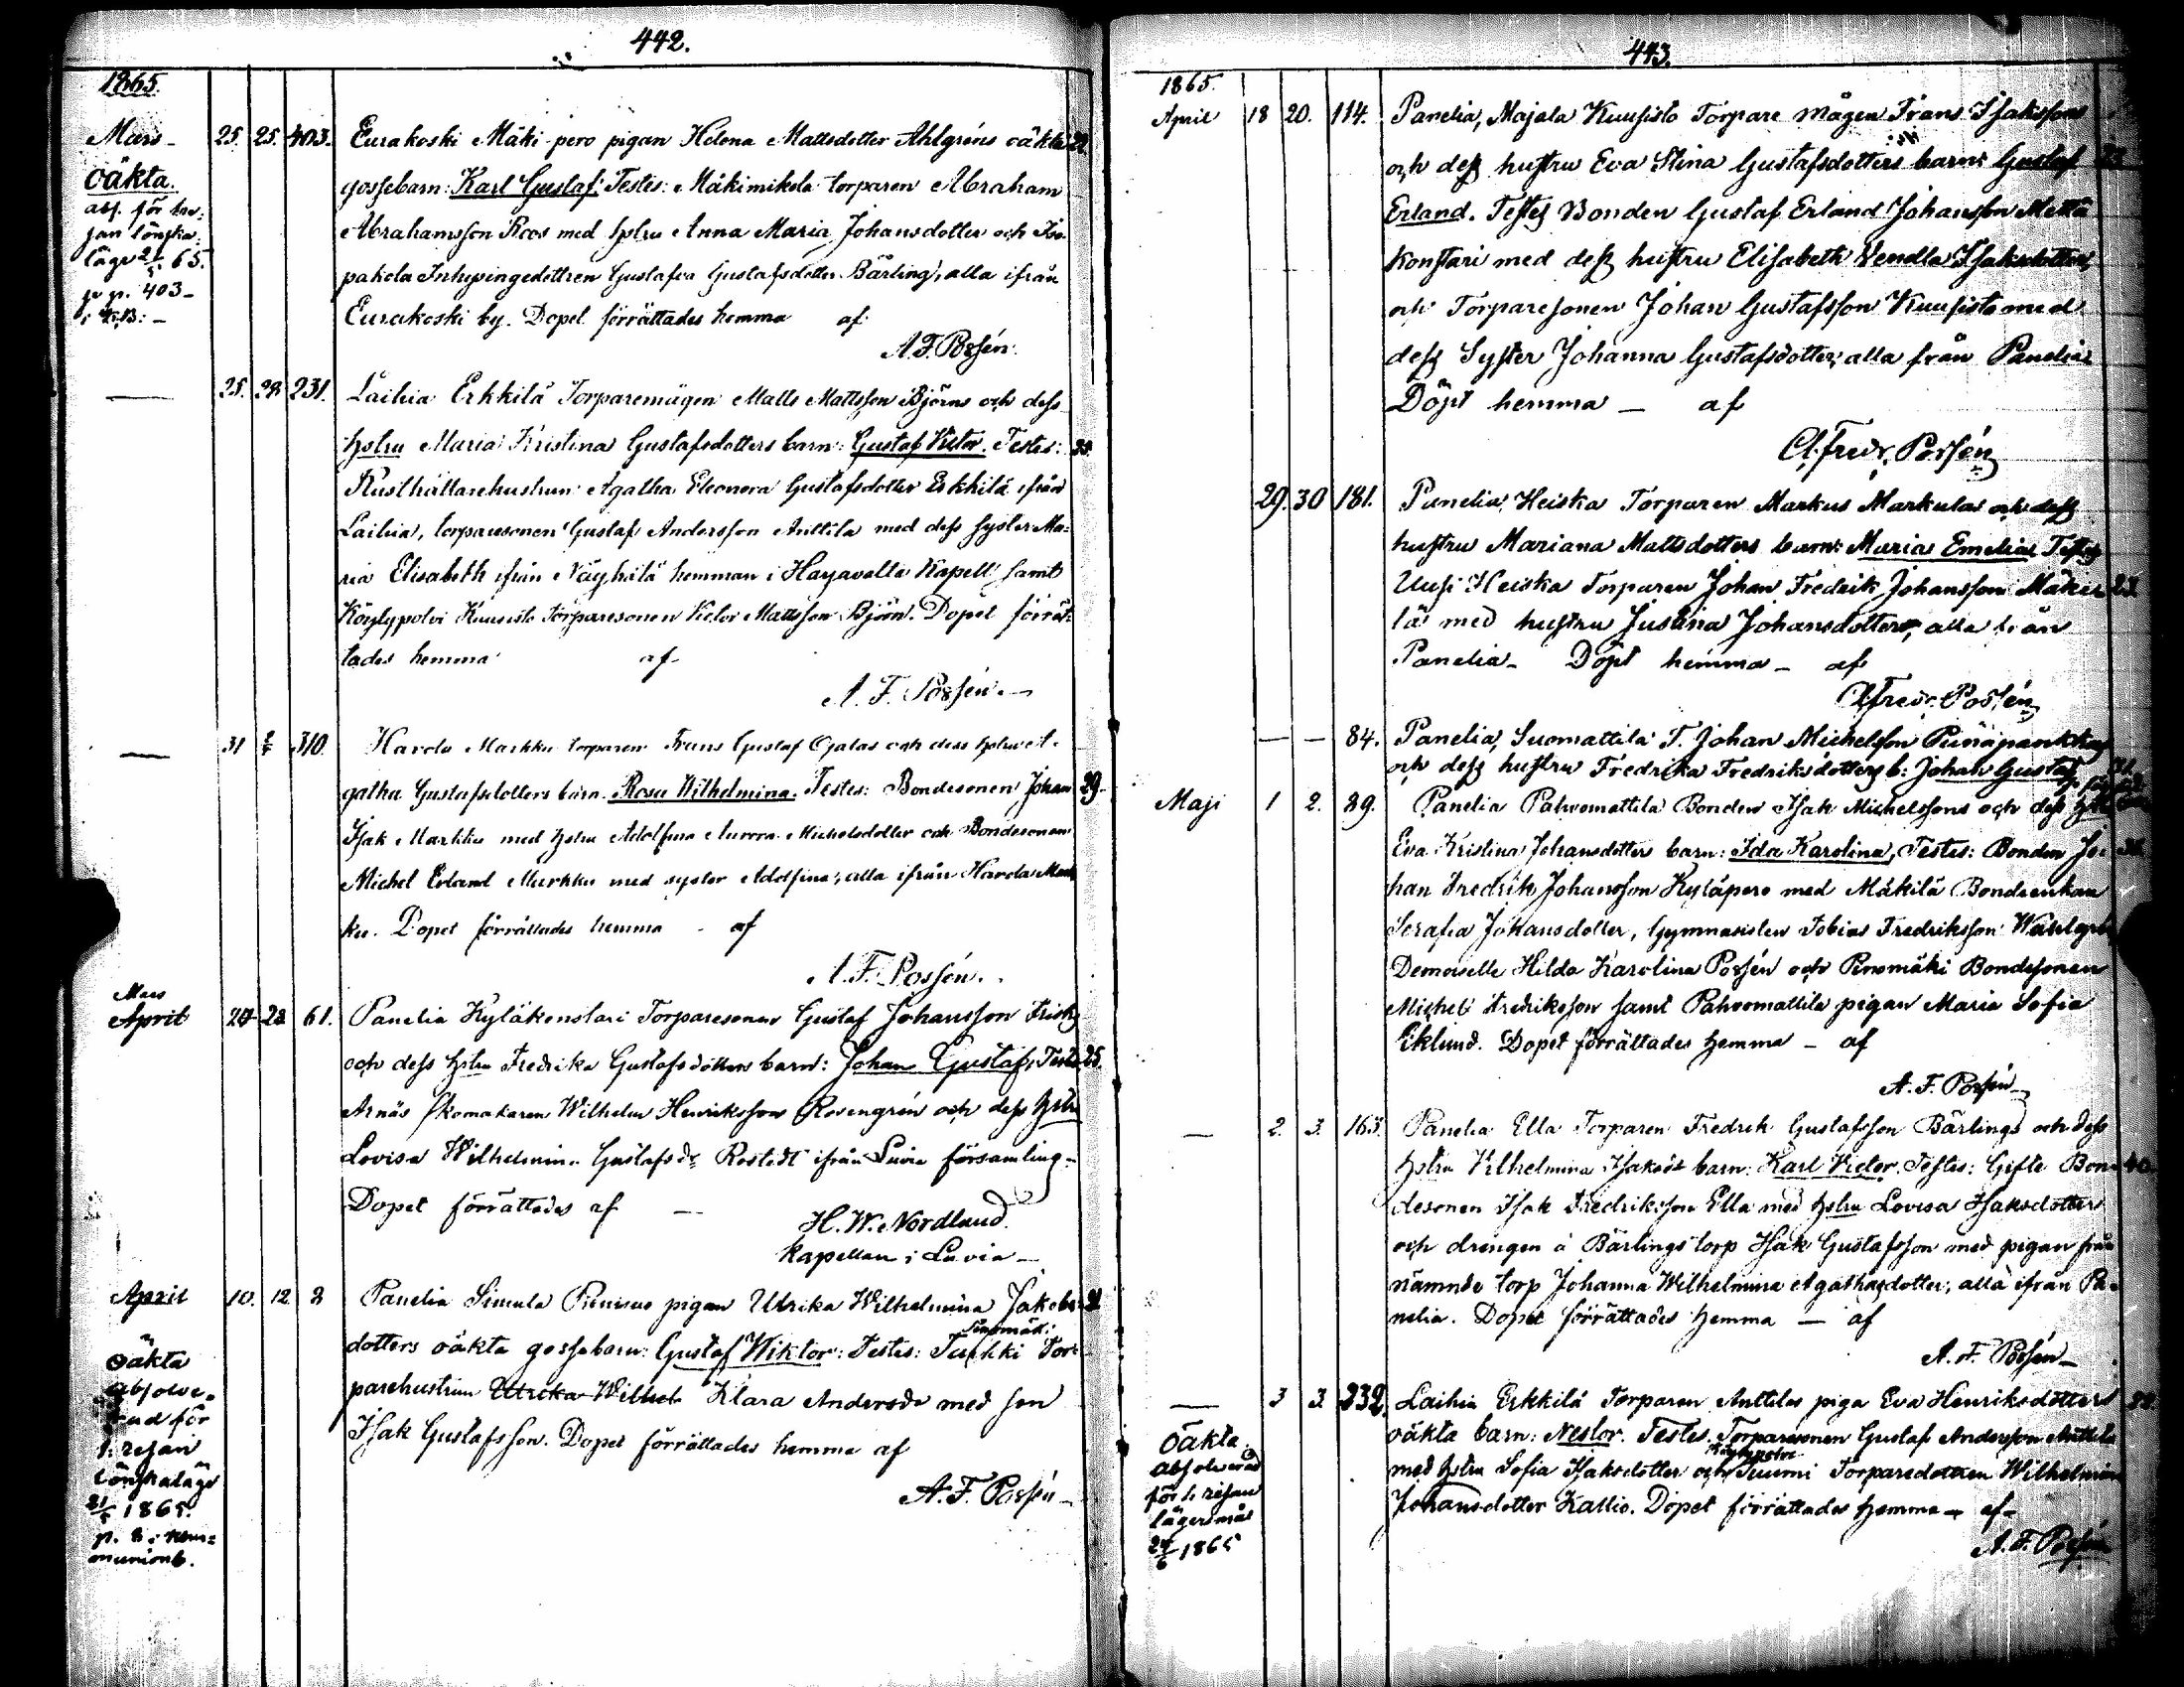 442.
1865.
Mars - 25. 25. 403. Eurakoski Mäki-pero pigan Helena Mattsdotter Ahlgréns oäkta
oäkta. gossebarn: Karl Gustaf: Testes: Mäkimikola torparen Abraham
abs. för
Abrahamsson Roos med hstru Anna Maria Johansdotter och
jan lönska-
läge 65.
pakola Inhysingedottren Gustafva Gustafsdotter Bärling, alla ifrån
p. 403 -
Eurakoski by. Dopet förrättades hemma af
A. F. Possén.
— 25. 28. 231. Laihia Erkkilä Torparemågen Matts Mattsson Björns och dess
hstru Maria Kristina Gustafsdotters barn: Gustaf Victor. Testes:
Rusthållarehustrun Agatha Eleonora Gustafsdotter Erkkilä ifrån
Laihia, torparesonen Gustaf Andersson Anttila med dess syster Ma-
ria Elisabeth ifrån Näyhälä hemman i Harjavalta Kapell samt
Köylypolvi Kuusisto Torparesonen Victor Mattsson Björn. Dopet förrät-
tades hemma af
A. F. Possén. —
— 31 310. Harola Markku torparen Frans Gustaf Ojalas och dess hstru A-
gatha Gustafsdotters barn. Rosa Wilhelmina. Testes: Bondesonen Johan 29.
Isak Markku med hstru Adolfina Aurora Michelsdotter och Bondesonen
Michel Erland Markku med syster Adolfina, alla ifrån Harola Mark
ku. Dopet förrättades hemma - af
A. F. Possén.
Mars
April 61. Panelia Kyläkonstari Torparesonen Gustaf Johansson Frisk
och dess hstru Fredrika Gustafsdotters barn: Johan Gustaf, Testes 25.
Arnäs skomakaren Wilhelm Henriksson Rosengrén och dess hstru
Lovisa Wilhelmina Gustafsdr Rostedt ifrån Luvia församling -
Dopet förrättades af —
H. W. Nordlund.
Kapellan i Luvia —
April 10. 12 8 Panelia Simula pigan Ulrika Wilhelmina Jakobs-
dotters oäkta gossebarn: Gustaf Wiktor: Testes: Tor-
oäkta
absolve-
rad för parehustrun Ulrika Wilhel Klara Andersdr med son
1. resan Isak Gustafsson. Dopet förrättades hemma af
lönskaläge
1865. A. F. Possén —
p. 8 i kom-
munionb.
443.
1865.
April 18 20. 114. Panelia, Majala Kuusisto Torpare mågen Frans Isaksson
och dess hustru Eva Stina Gustafsdotters barn: Gustaf
Erland. Testes Bonden Gustaf Erland Johansson Mettä
Konstari med dess hustru Elisabeth Vendla Isaksdotter,
och Torparesonen Johan Gustafsson Kuusisto med
dess Syster Johanna Gustafsdotter, alla från Panelia
Döpt hemma — af
A. Fredr. Possén
29. 30 181. Panelia, Heiska Torparen Markus Markulas och dess
hustru Mariana Mattsdotters barn: Maria Emelia Testes
Uusi Heiska Torparen Johan Fredrik Johansson Mäki-
lä med hustru Justina Johansdotter, alla från
Panelia - Döpt hemma - af
A. Fredr. Possén
— — 84. Panelia, Suomattila T. Johan Michelsson
och dess hustru Fredrika Fredriksdotters b: Johan Gustaf
Maji 1 2. 89. Panelia Pahvomattila Bonden Isak Michelssons och dess hstru
Eva Kristina Johansdotters barn: Ida Karolina, Testes: Bonden Jo-
han Fredrik Johansson Kyläpero med Mäkilä Bondeenkan
Serafia Johansdotter, Gymnasisten Tobias Fredriksson
Demoiselle Hilda Karolina Possén och Penomäki Bondesonen
Michel Fredriksson samt Pahvomattila pigan Maria Sofia
Eklund. Dopet förrättades hemma — af
A. F. Possén —
— 2. 3. 163. Panelia Ella Torparen Fredrik Gustafsson Bärlings och dess
hstru Vilhelmina Isaksdr barn: Karl Victor. Testes: Gifte Bon- 40.
desonen Isak Fredriksson Ella med hstru Lovisa Isaksdotter
och drengen å Bärlings torp Isak Gustafsson med pigan från
nämnde torp Johanna Wilhelmina Agathasdotter, alla ifrån Pa-
nelia. Dopet förrättades hemma — af
A. F. Possén —
— 3 3. 232. Laihia Erkkilä Torparen Anttilas piga Eva Henriksdotters
oäkta oäkta barn: Nestor. Testes. Torparesonen Gustaf Andersson Anttila
Köylypolvi
absolverad med hstru Sofia Isaksdotter och Tuumi Torparedottren Wilhelmina
för 1. resan
lägersmål Johansdotter Kallio. Dopet förrättades hemma — af —
1865 A. F. Possén